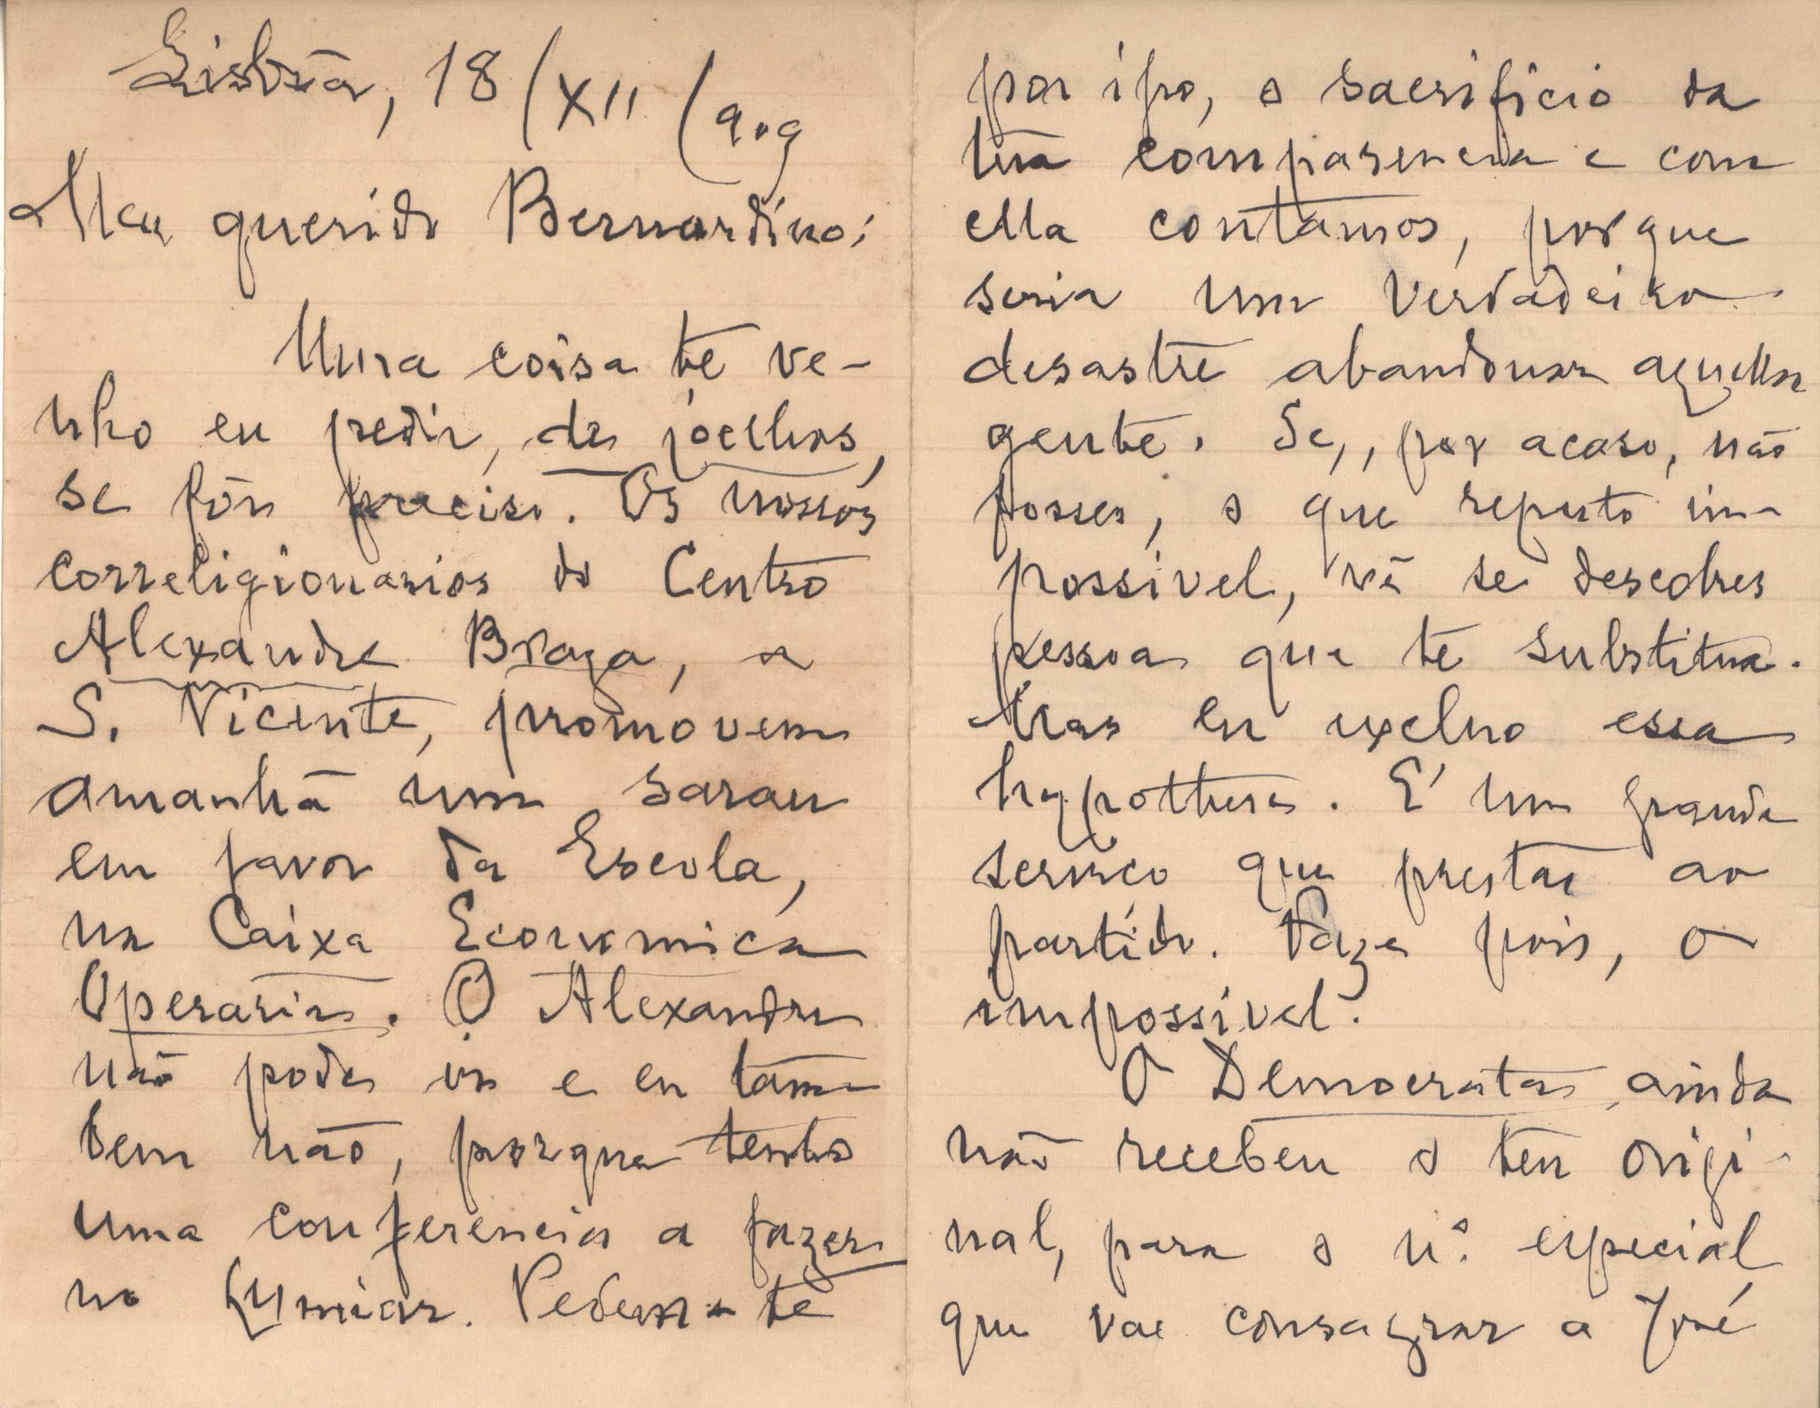 Lisbôa, 18/XII/909
Meu querido Bernardino:
Uma coisa te ve-
nho eu pedir, de joelhos,
se fôr preciso. Os nossos
correligionarios do Centro
Alexandre Braga, a
S. Vicente, promovem
amanhã um sarau
em favor da Escola,
na Caixa Economica
Operaria. O Alexandre
não pode ir e eu tam-
bem não, porque tenho
uma conferencia a fazer
no Lumiar. Pedem-te
por isso, o sacrificio da
tua comparencia e com
ella contâmos, porque
seria um verdadeiro
desastre abandonar aquella
gente. Se, por acaso, não
posses, o que reputo im-
possivel, vê se descobres
pessoa que te substitua.
Mas eu excluo essa
hypothese. E' um grande
serviço que prestas ao
partido. Faze pois, o
impossivel.
O Democrata ainda
não recebeu o teu origi-
nal, para o nº especial
que vae consagrar a José